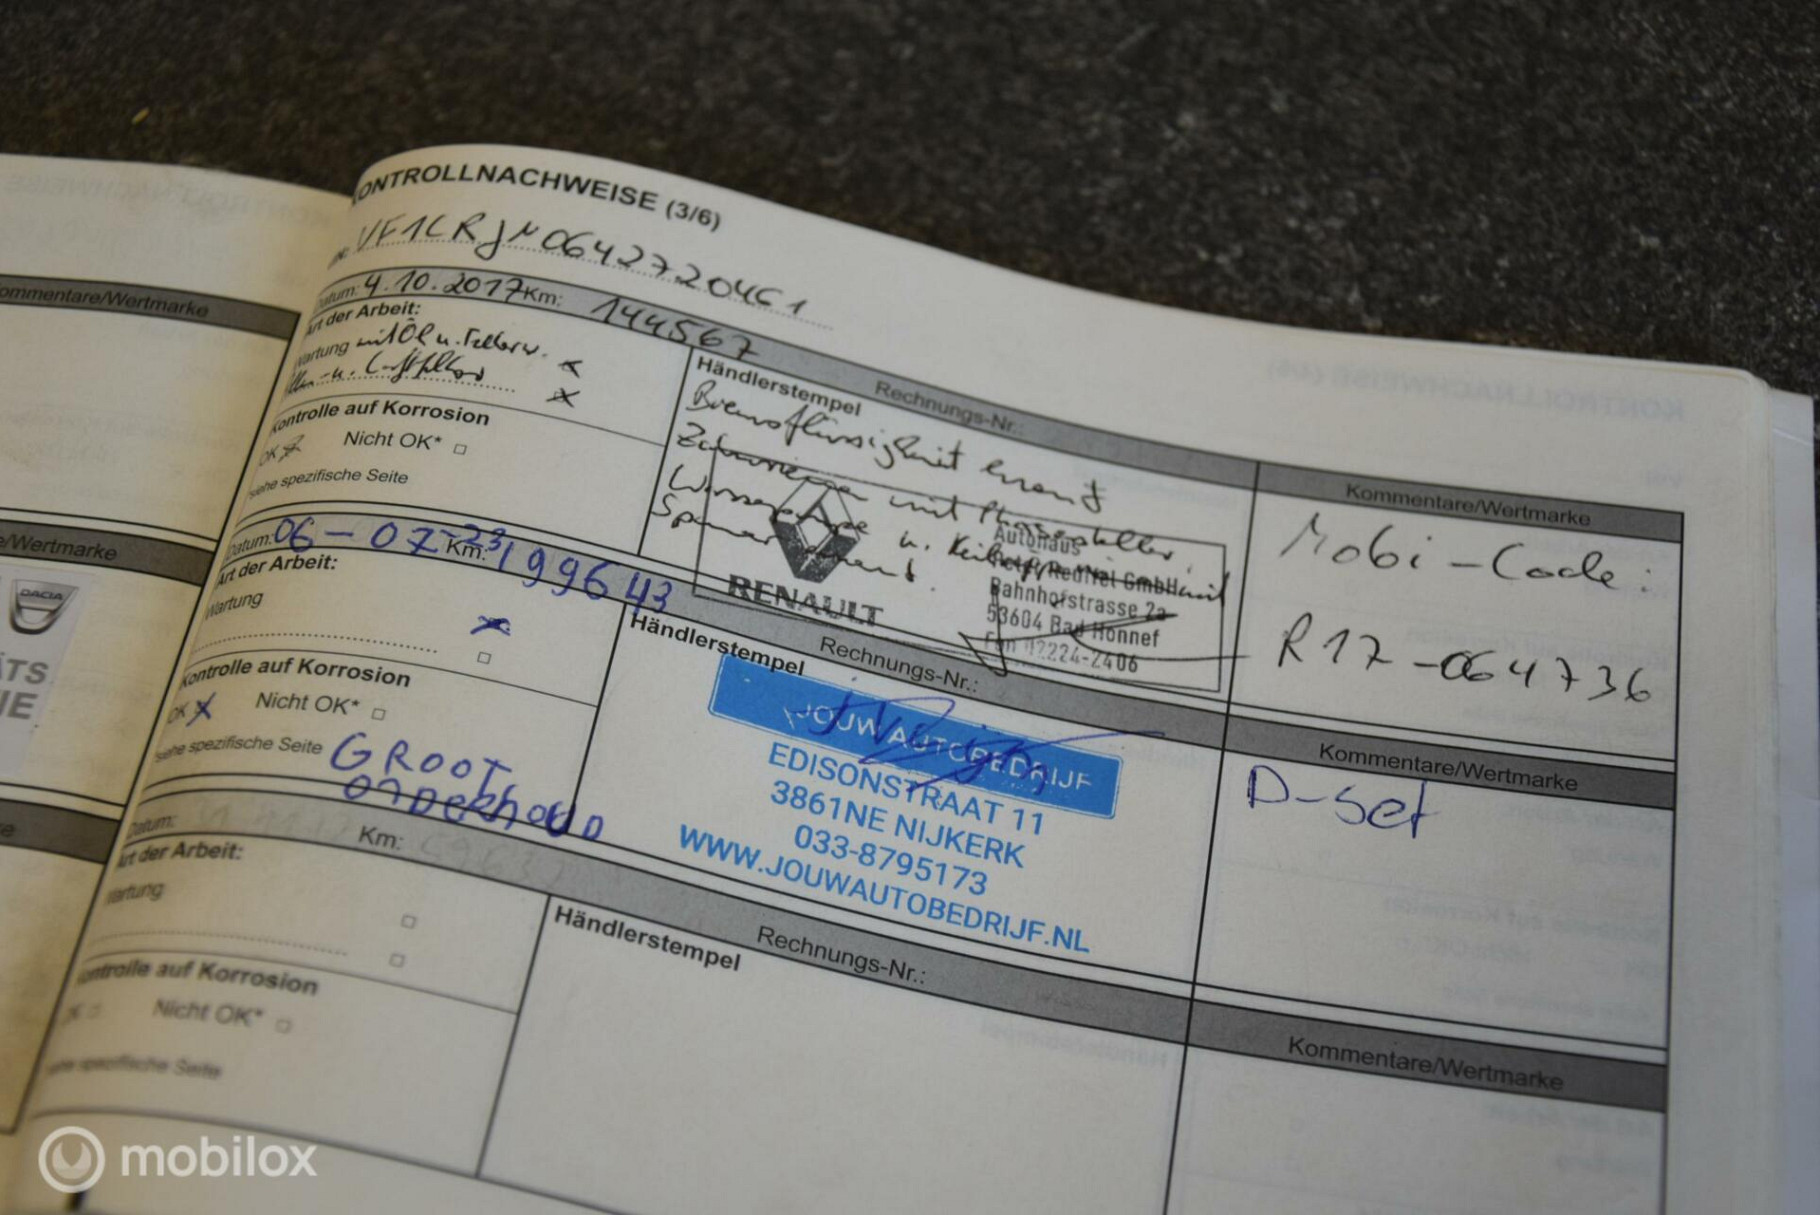 KONTROLLNACHWEISE (3/6)
VF1LRJN0642720461
Datum: 4.10.2017 Km: 144567
Rechnungs-Nr.:
Kommentare/Wertmarke
Art der Arbeit:
Wartung mit Öl u.
u. Luftfilter
Kontrolle auf Korrosion
OK Nicht OK*
*siehe spezifische Seite
Händlerstempel
Bremsflüssigkeit ersetzt
Zahnriemen mit Phasensteller,
Wasserpumpe u.
RENAULT
Autohaus
GmbH
Bahnhofstrasse 2a
53604 Bad Honnef
Fon 02224-2406
Mobi-Code:
R17-064736
Datum: 06-07-23 Km: 199643
Rechnungs-Nr.:
Kommentare/Wertmarke
Art der Arbeit:
Wartung
Kontrolle auf Korrosion
OK Nicht OK*
*siehe spezifische Seite
GROOT
ONDERHOUD
Händlerstempel
JOUWAUTOBEDRIJF
EDISONSTRAAT 11
3861NE NIJKERK
033-8795173
WWW.JOUWAUTOBEDRIJF.NL
D-set
Datum: Km:
Rechnungs-Nr.:
Kommentare/Wertmarke
Art der Arbeit:
Wartung
Kontrolle auf Korrosion
OK Nicht OK*
*siehe spezifische Seite
Händlerstempel
Kommentare/Wertmarke
/Wertmarke
DACIA
mobilox